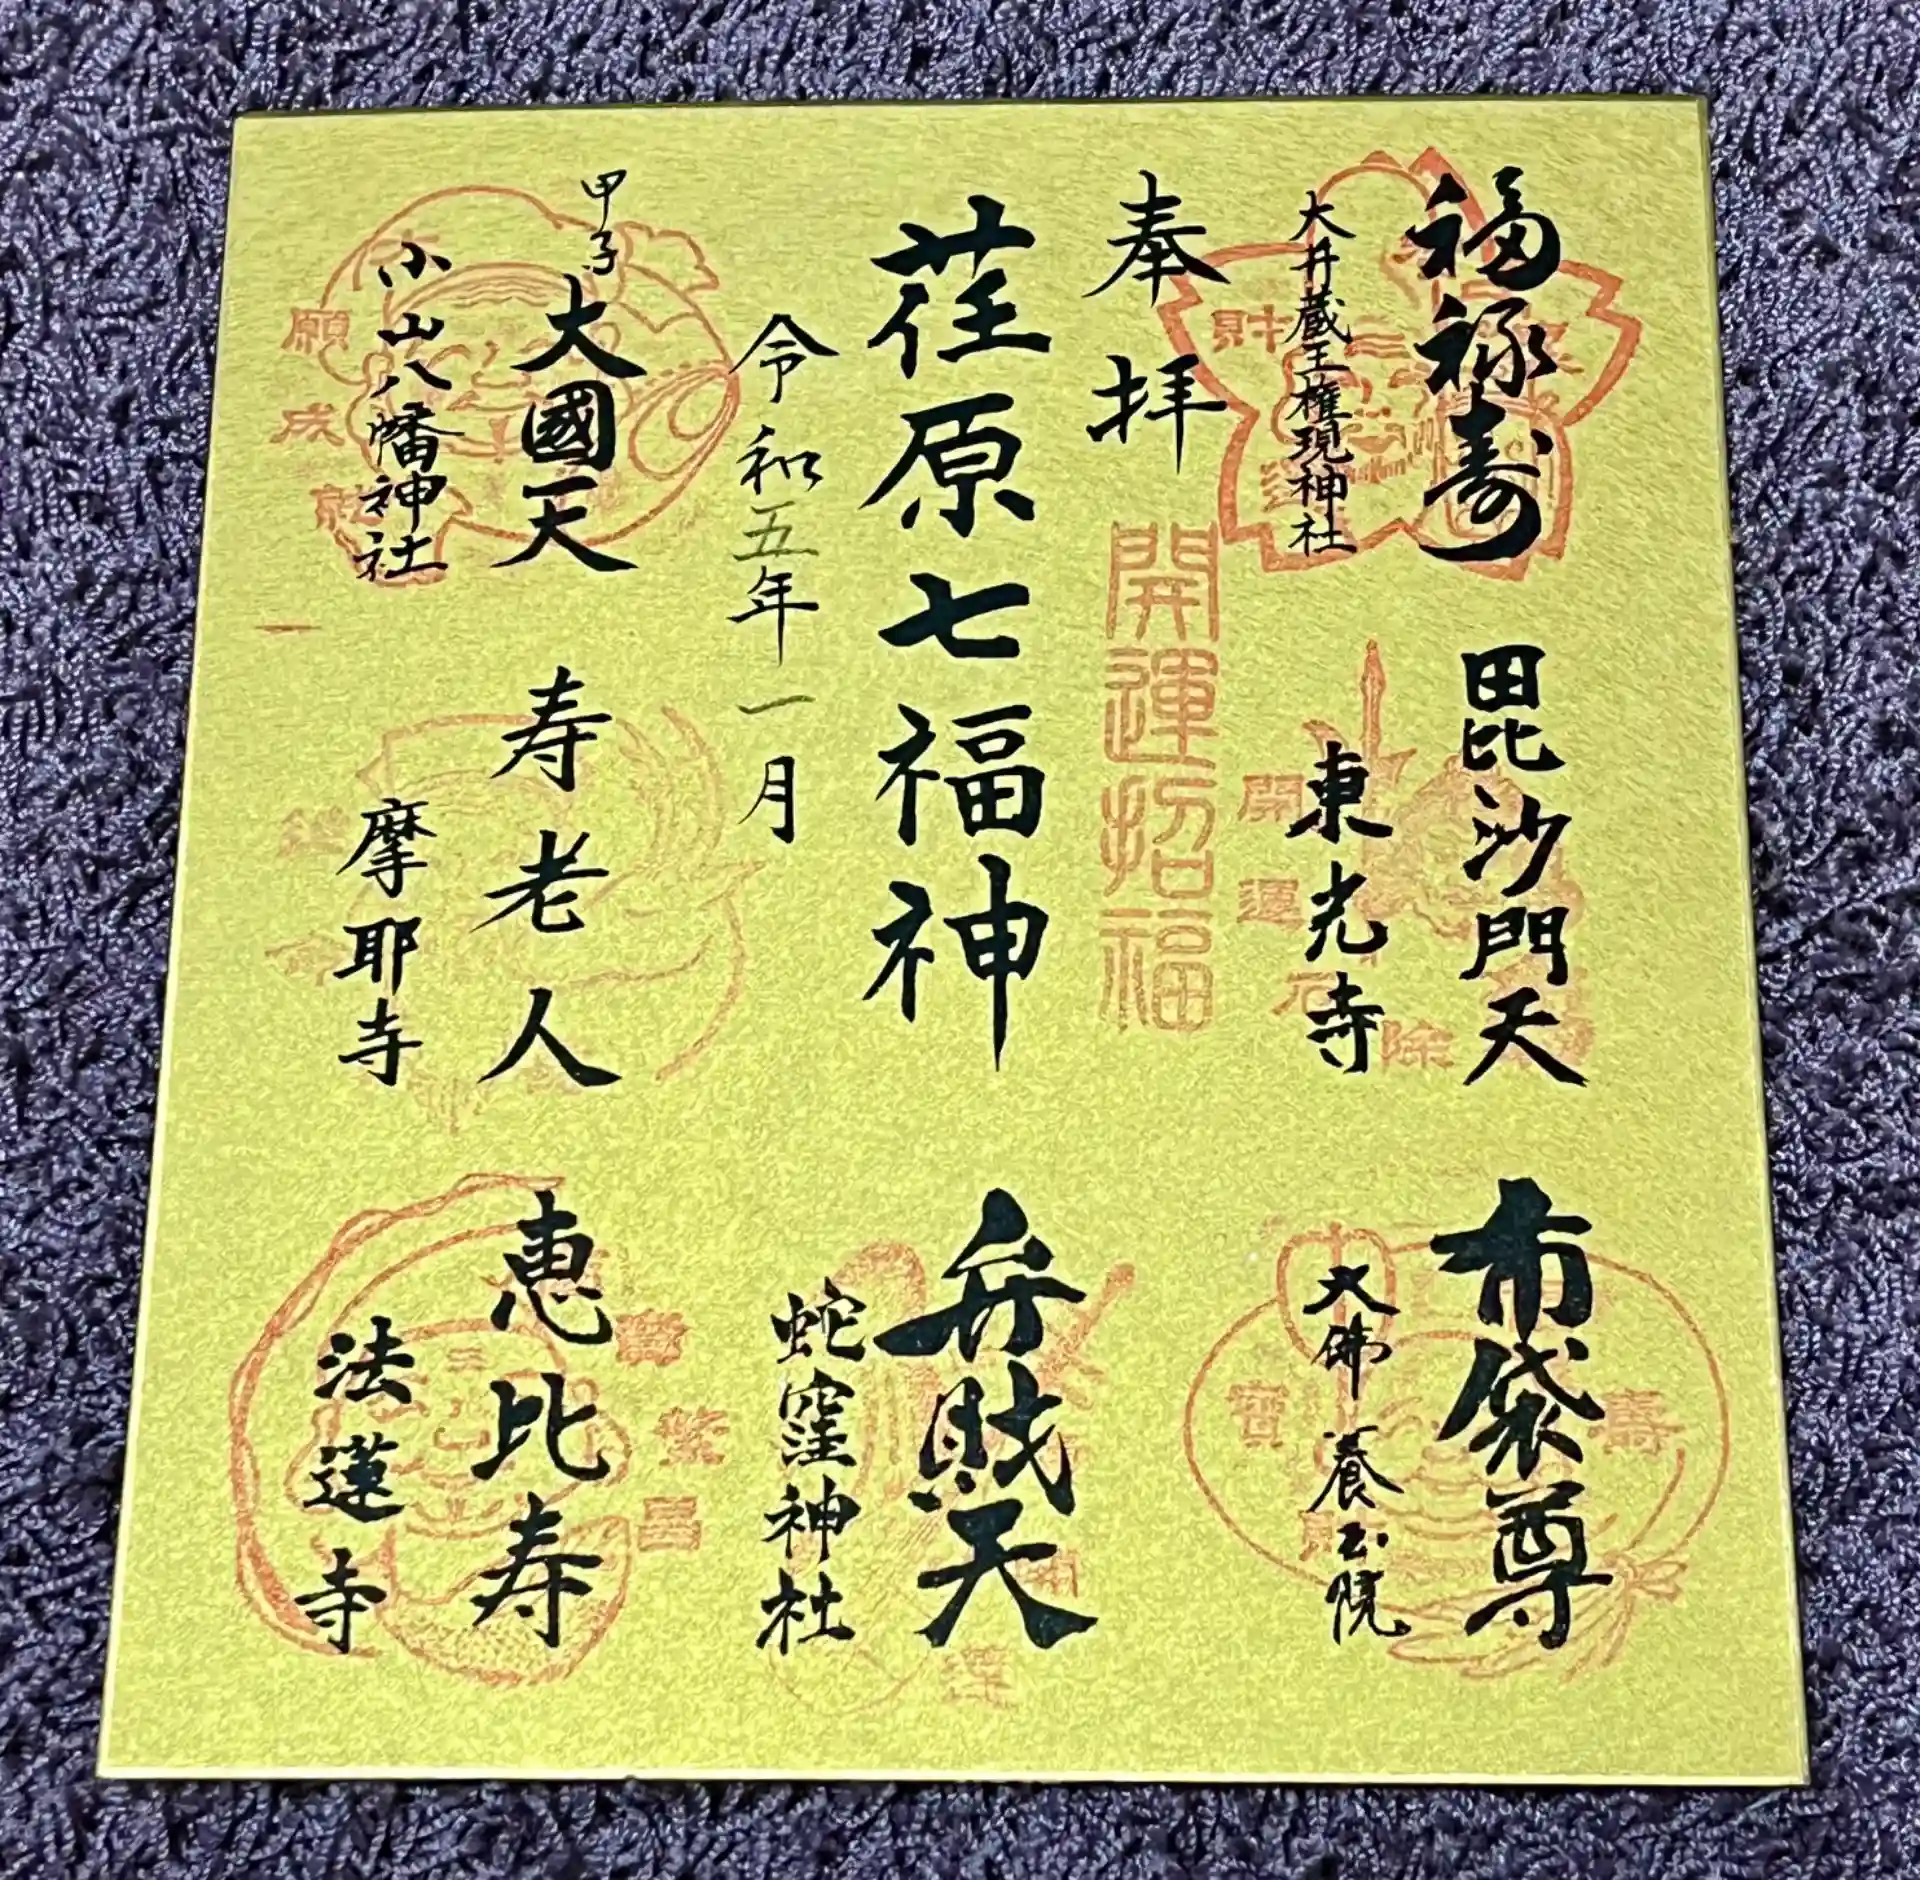 福禄寿
大井蔵王権現神社
毘沙門天
東光寺
開運
布袋尊
大佛 養玉院
寿
寳
財
奉拝
開運招福
荏原七福神
令和五年一月
弁財天
蛇窪神社
甲子大國天
小山八幡神社
願成就
寿老人
摩耶寺
恵比寿
法蓮寺
繁昌